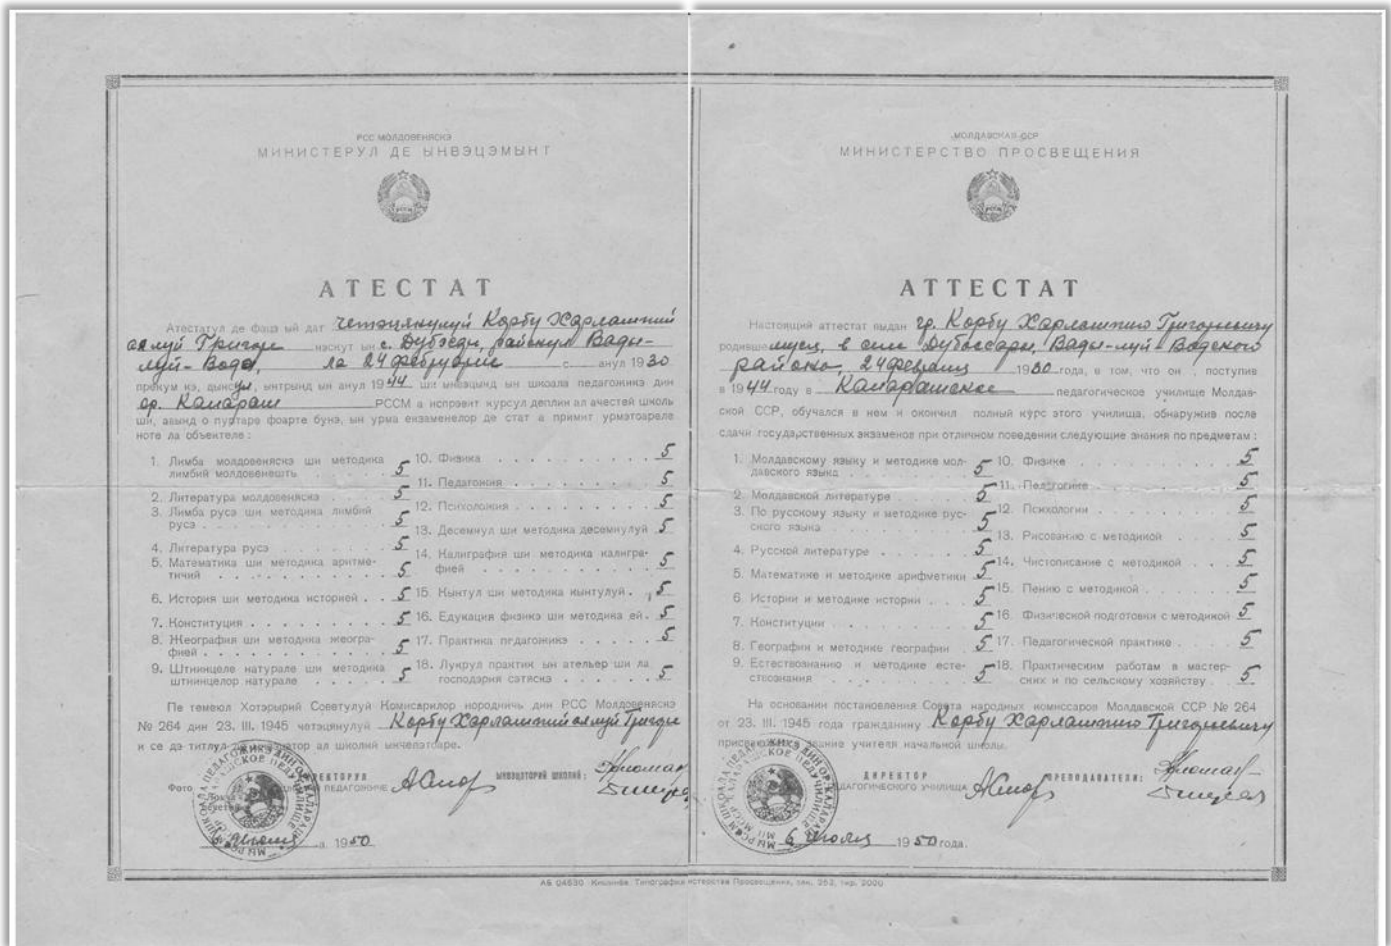 РСС МОЛДОВЕНЯСКЭ
МИНИСТЕРУЛ ДЕ ЫНВЭЦЭМЫНТ
АТЕСТАТ
Атестатул де фаца ый дат четэцянулуй Корбу Харлампий
ал луй Григоре нэскут ын с. Дубэсарь, районул Вады-
луй-Водэ, ла 24 февруарие анул 1930
прекум кэ, дынсул, ынтрынд ын анул 1944 ши ынвэцынд ын шкоала педагожикэ дин
ор. Калараш РССМ а испрэвит курсул деплин ал ачестей школь
ши, авынд о пуртаре фоарте бунэ, ын урма екзаменелор де стат а примит урмэтоареле
ноте ла объектеле:
1. Лимба молдовеняскэ ши методика
лимбий молдовенешть 5
2. Литература молдовеняскэ 5
3. Лимба русэ ши методика лимбий
русэ 5
4. Литература русэ 5
5. Математика ши методика аритме-
тичий 5
6. История ши методика историей 5
7. Конституция 5
8. Жеография ши методика жеогра-
фией 5
9. Штиинцеле натурале ши методика
штиинцелор натурале 5
10. Физика 5
11. Педагожия 5
12. Психоложия 5
13. Десемнул ши методика десемнулуй 5
14. Калиграфия ши методика калигра-
фией 5
15. Кынтул ши методика кынтулуй 5
16. Едукация физикэ ши методика ей 5
17. Практика педагожикэ 5
18. Лукрул практик ын ательер ши ла
господэрия сатяскэ 5
Пе темеюл Хотэрырий Советулуй Комисарилор нородничь дин РСС Молдовеняскэ
№ 264 дин 23. III. 1945 четэцянулуй Корбу Харлампий ал луй Григоре
и се дэ титлул де ынвэцэтор ал школий ынчепэтоаре.
ДИРЕКТОРУЛ
ПЕДАГОЖИЧЕ
ЫНВЭЦЭТОРИЙ ШКОЛИЙ:
Фото
6 Июля а. 1950
МОЛДАВСКАЯ ССР
МИНИСТЕРСТВО ПРОСВЕЩЕНИЯ
АТТЕСТАТ
Настоящий аттестат выдан гр. Корбу Харлампию Григорьевичу
родившемуся, в селе Дубоссары, Вады-луй-Водского
района, 24 февраля 1930 года, в том, что он, поступив
в 1944 году в Каларашское педагогическое училище Молдав-
ской ССР, обучался в нем и окончил полный курс этого училища, обнаружив после
сдачи государственных экзаменов при отличном поведении следующие знания по предметам:
1. Молдавскому языку и методике мол-
давского языка 5
2. Молдавской литературе 5
3. По русскому языку и методике рус-
ского языка 5
4. Русской литературе 5
5. Математике и методике арифметики 5
6. Истории и методике истории 5
7. Конституции 5
8. Географии и методике географии 5
9. Естествознанию и методике есте-
ствознания 5
10. Физике 5
11. Педагогике 5
12. Психологии 5
13. Рисованию с методикой 5
14. Чистописание с методикой 5
15. Пению с методикой 5
16. Физической подготовки с методикой 5
17. Педагогической практике 5
18. Практическим работам в мастер-
ских и по сельскому хозяйству 5
На основании постановления Совета народных комиссаров Молдавской ССР № 264
от 23. III. 1945 года гражданину Корбу Харлампию Григорьевичу
звание учителя начальной школы.
ДИРЕКТОР
ПЕДАГОГИЧЕСКОГО УЧИЛИЩА
ПРЕПОДАВАТЕЛИ:
6 Июля 1950 года.
АБ 04630 Кишинёв. Типография Просвещения, зак. 252, тир. 2000